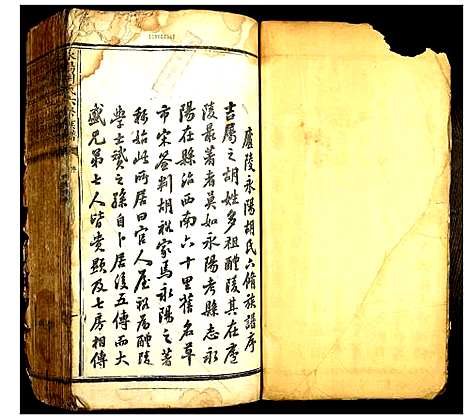 廬陵永陽胡氏六脩族譜序
吉屬之胡姓多祖醴陵其在廬
陵最著者莫如永陽考縣志永
陽在縣治西南六十里舊名草
市宋簽判胡衹家焉永陽之著
稱始此所居曰官人屋衹為醴陵
學士贇之孫自卜居後五傳而大
盛兄弟七人皆貴顯及七房相傳